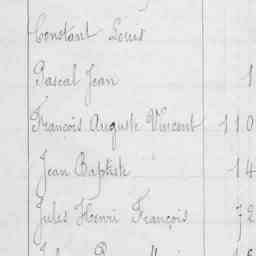 Constant Louis
Pascal Jean 1
François Auguste Vincent 110
Jean Baptiste 14
Jules Henri François 72